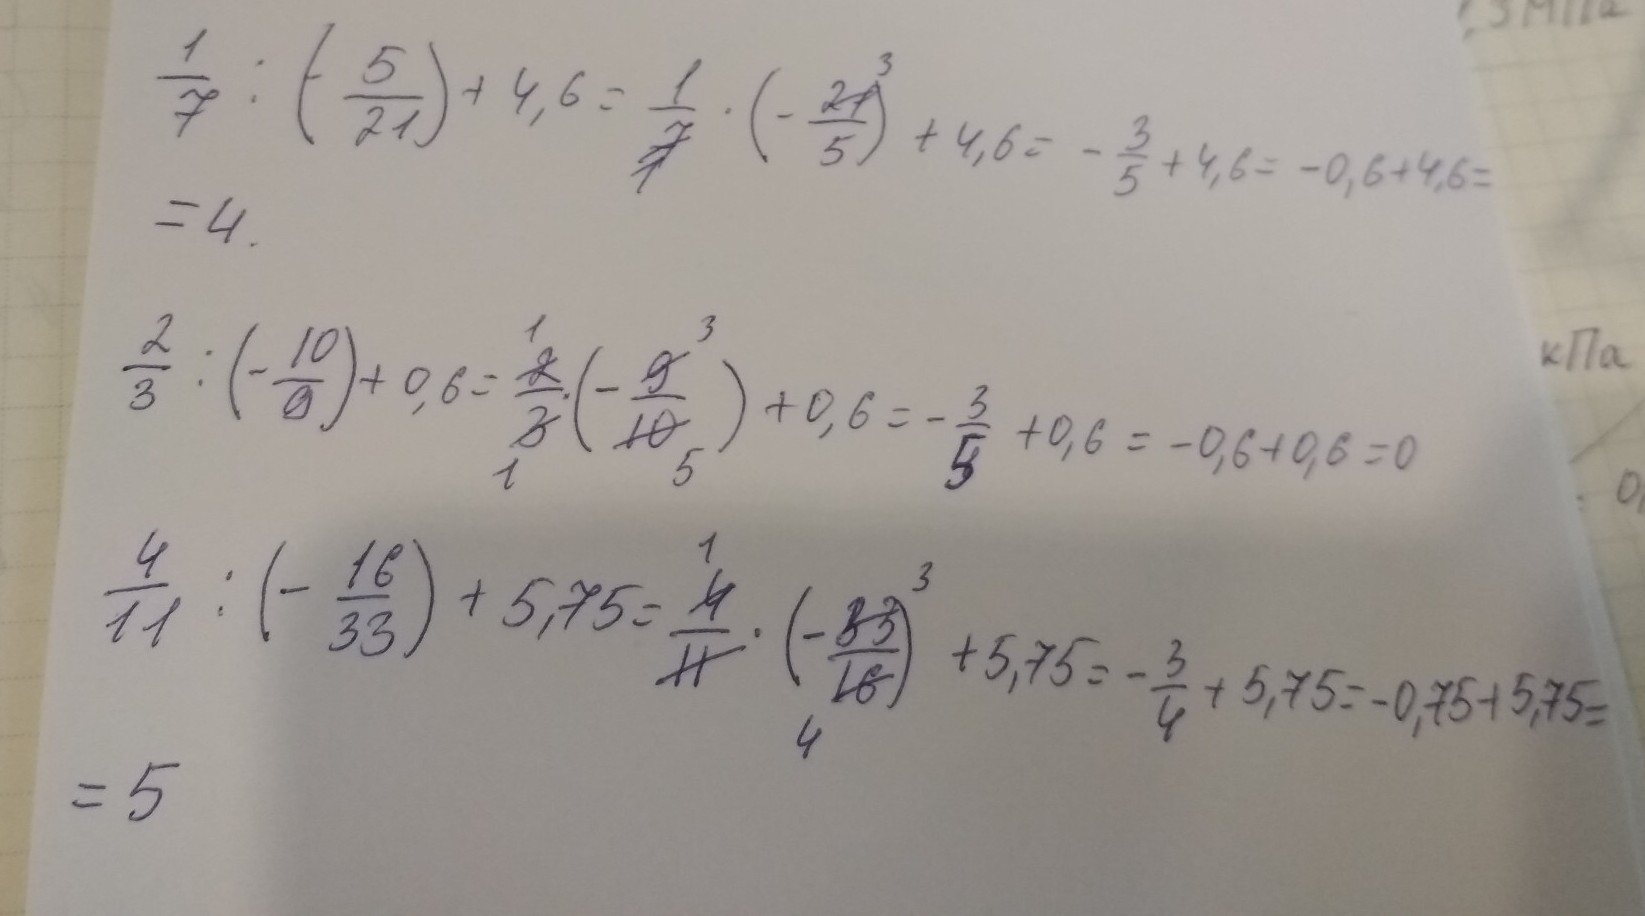 1/7 : (-5/21) + 4,6 = 1/7 · (-21/5) + 4,6 = -3/5 + 4,6 = -0,6 + 4,6 =
= 4.
2/3 : (-10/9) + 0,6 = 2/3 · (-9/10) + 0,6 = -3/5 + 0,6 = -0,6 + 0,6 = 0
4/11 : (-16/33) + 5,75 = 4/11 · (-33/16) + 5,75 = -3/4 + 5,75 = -0,75 + 5,75 =
= 5
кПа